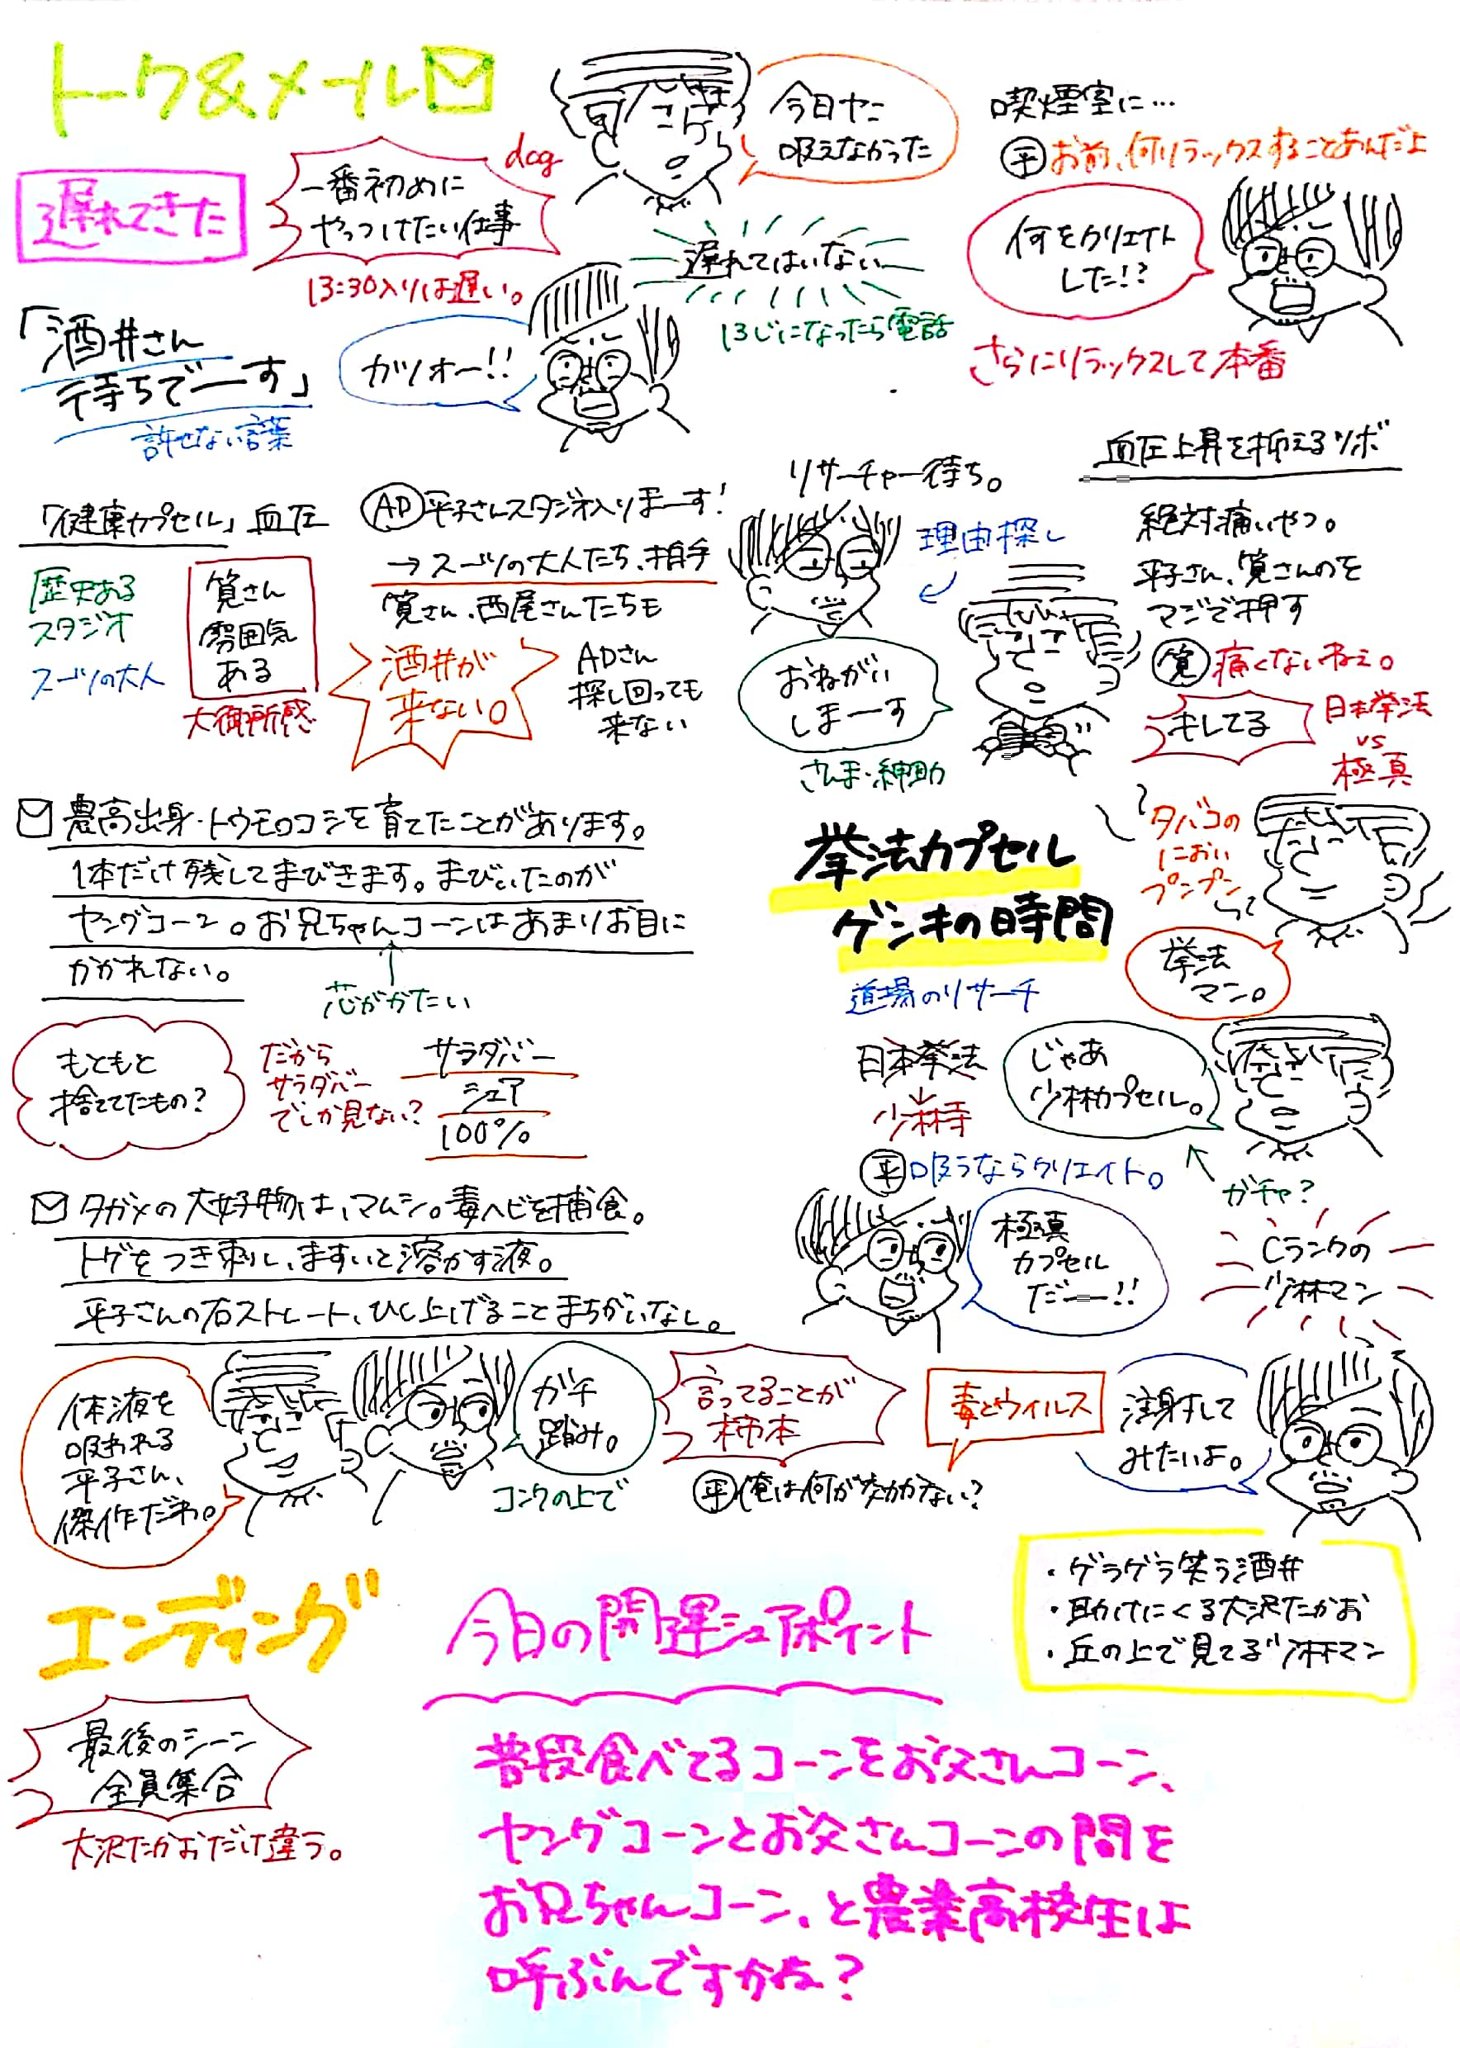 トーク&メール
遅れてきた
一番初めに
やっつけたい仕事
dcg
13:30入りは遅い。
今日ヤニ
吸えなかった
喫煙室に…
平 お前、何リラックスすることあんだよ
何をクリエイト
した!?
さらにリラックスして本番
遅れてはいない
13じになったら電話
「酒井さん
待ちでーす」
許せない言葉
ガツオー!!
「健康カプセル」血圧
歴史ある
スタジオ
スーツの大人
筧さん
雰囲気
ある
大御所感
AD 平子さんスタジオ入りまーす!
→スーツの大人たち、拍手
筧さん、西尾さんたちも
酒井が
来ない。
ADさん
探し回っても
来ない
リサーチャー待ち。
理由探し
おねがい
しまーす
さんま・紳助
血圧上昇を抑えるツボ
絶対痛いやつ。
平子さん、筧さんのを
マジで押す
筧 痛くないねぇ。
キしてる
日本拳法
vs
極真
タバコの
におい
プンプン
拳法
マン。
農高出身・トウモロコシを育てたことがあります。
1本だけ残してまびきます。まびいたのが
ヤングコーン。お兄ちゃんコーンはあまりお目に
かかれない。
芯がかたい
もともと
捨ててたもの?
だから
サラダバー
でしか見ない?
サラダバー
シェア
100%
拳法カプセル
ゲンキの時間
道場のリサーチ
日本拳法
少林寺
じゃあ
少林カプセル。
ガチャ?
平 吸うならクリエイト。
極真
カプセル
だーー!!
Cランクの
少林マン
タガメの大好物は、マムシ。毒ヘビを捕食。
トゲをつき刺し、ますいと溶かす液。
平子さんの右ストレート、ひし上げることまちがいなし。
体液を
吸われる
平子さん、
傑作だわ。
ガチ
踏み。
コンクの上で
言ってることが
柿本
平 俺は何が効かない?
毒とウイルス
注射して
みたいよ。
・ゲラゲラ笑う酒井
・助けにくる大沢たかお
・丘の上で見てる少林マン
エンディング
最後のシーン
全員集合
大沢たかおだけ違う。
今日の開運シェアポイント
普段食べてるコーンをお父さんコーン、
ヤングコーンとお父さんコーンの間を
お兄ちゃんコーン、と農業高校生は
呼ぶんですかね?